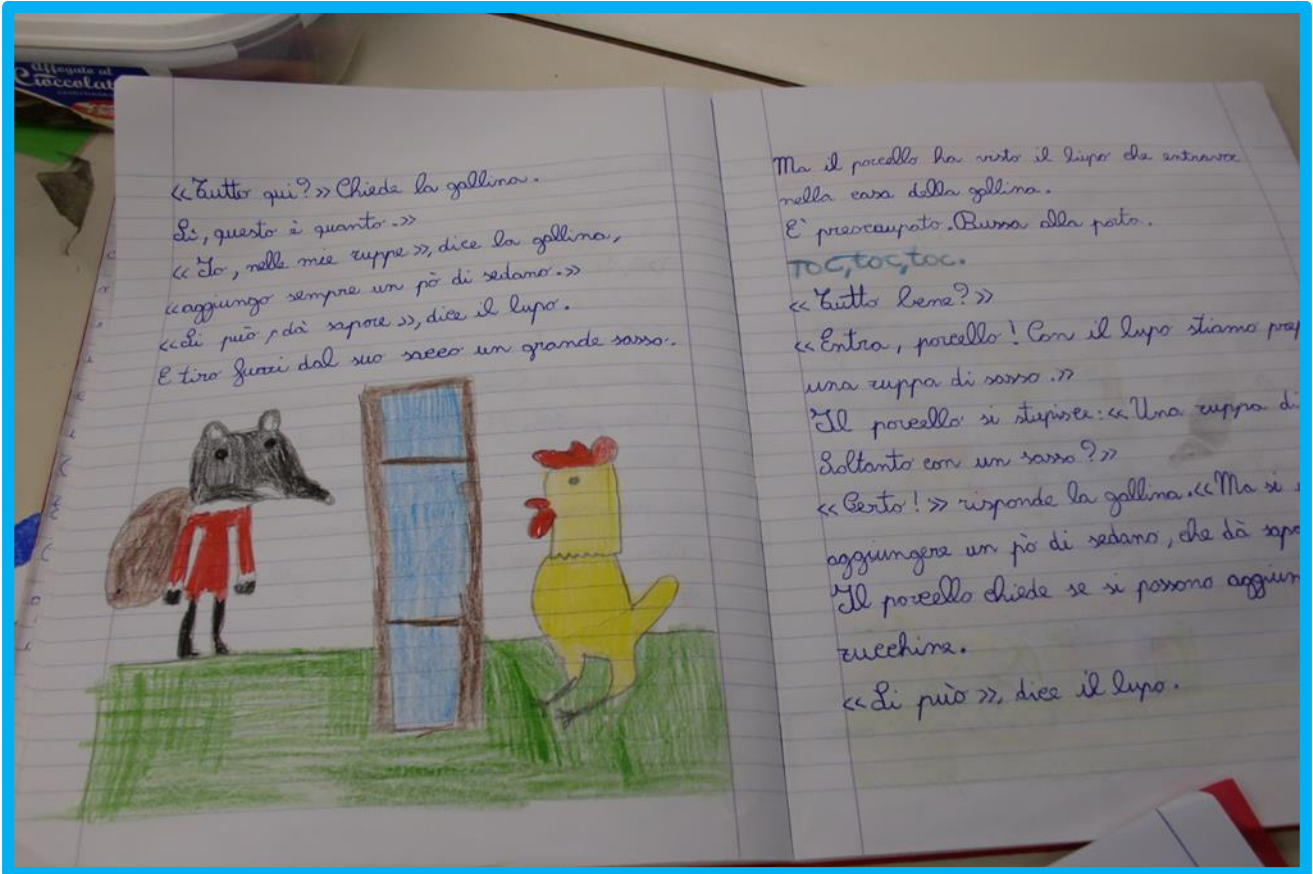 Affogato al
Cioccolat
«Tutto qui?» Chiede la gallina.
Si, questo è quanto.»
«Io, nelle mie zuppe», dice la gallina,
«aggiungo sempre un pò di sedano.»
«Si può, dà sapore», dice il lupo.
E tiro fuori dal suo sacco un grande sasso.
Ma il porcello ha visto il lupo che entrava
nella casa della gallina.
E' preoccupato. Bussa alla porta.
TOC, toc, toc.
«Tutto bene?»
«Entra, porcello! Con il lupo stiamo prep
una zuppa di sasso.»
Il porcello si stupisce: «Una zuppa di
Soltanto con un sasso?»
«Certo!» risponde la gallina. «Ma si
aggiungere un pò di sedano, che dà sapo
Il porcello chiede se si possono aggiun
zucchine.
«Si può», dice il lupo.